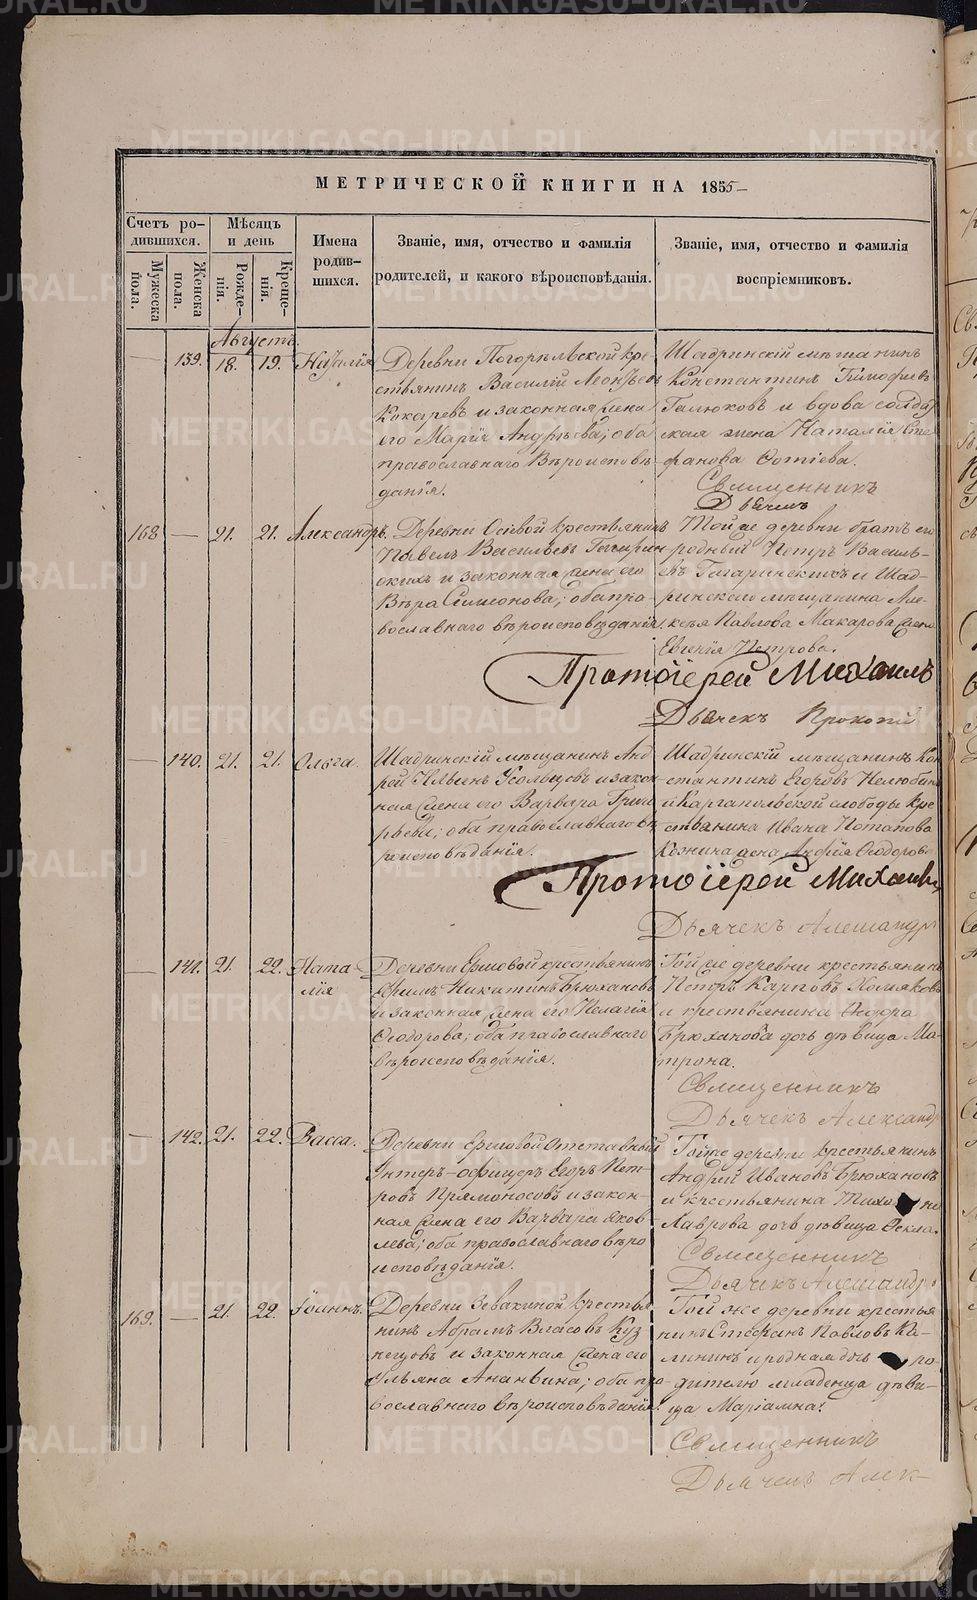 МЕТРИЧЕСКОЙ КНИГИ НА 1855
Счетъ родившихся.
Мужеска пола.
Женска пола.
Мѣсяцъ и день
Рожденія.
Крещенія.
Имена родившихся.
Званіе, имя, отчество и фамилія родителей, и какого вѣроисповѣданія.
Званіе, имя, отчество и фамилія воспріемниковъ.
Августъ.
139. 18. 19. Наталія
Деревни Погорѣльской кре-
стьянинъ Василій Леонтьевъ
Кокаревъ и законная жена
его Марія Андрѣева; оба
православнаго Вѣроисповѣ-
данія.
Шадринскій мѣщанинъ
Константинъ Тимофеевъ
Галюковъ и вдова солдат-
ская жена Наталія Сте-
фанова Фотіева.
Священникъ
Дьячекъ
168 — 21. 21. Александръ.
Деревни Осѣевой крестьянинъ
Павелъ Васильевъ Гагарин-
скихъ и законная жена его
Вѣра Симеонова; оба пра-
вославнаго вѣроисповѣданія.
Той же деревни братъ его
родный Петръ Василь-
евъ Гагаринскихъ и Шад-
ринскаго мѣщанина Але-
ксѣя Павлова Макарова жена
Евгенія Петрова.
Протоіерей Михаилъ
Дьячекъ Прокопій
— 140. 21. 21. Ольга.
Шадринскій мѣщанинъ Анд-
рей Ильинъ Усольцевъ и закон-
ная жена его Варвара Григо-
рьева; оба православнаго вѣ-
роисповѣданія.
Шадринскій мѣщанинъ Кон-
стантинъ Егоровъ Нелюбинъ
и Каргапольской слободы кре-
стьянина Ивана Потапова
жена Анфія Ѳеодорова
Протоіерей Михаилъ
Дьячекъ Александръ
— 141. 21. 22. Ната
лія
Деревни Ершовой крестьянинъ
Ефимъ Никитинъ Брюхановъ
и законная жена его Пелагія
Ѳеодорова; оба православнаго
вѣроисповѣданія.
Той же деревни крестьянинъ
Петръ Карповъ Холяковъ
и крестьянина Ѳедора
Брюханова дочь дѣвица Ма-
трона.
Священникъ
Дьячекъ Александръ
— 142. 21. 22. Васса.
Деревни Ершовой Отставный
Унтеръ-офицеръ Егоръ Пет-
ровъ Прямоносовъ и закон-
ная жена его Варвара Яков-
лева; оба православнаго вѣро
исповѣданія.
Тойже деревни крестьянинъ
Андрей Ивановъ Брюхановъ
и крестьянина Тихо на
Лаврова дочь дѣвица Ѳекла.
Священникъ
Дьячекъ Александръ
169. — 21. 22. Іоаннъ.
Деревни Зевакиной крестья-
нинъ Абрамъ Власовъ Куз-
нецовъ и законная жена его
Ульяна Ананьина; оба пра-
вославнаго вѣроисповѣданія.
Той же деревни крестья-
нинъ Стефанъ Павловъ Ка-
лининъ и родная дочь ро-
дителю младенца дѣви-
ца Маріамна.
Священникъ
Дьячекъ Алек-
METRIKI.GASO-URAL.RU